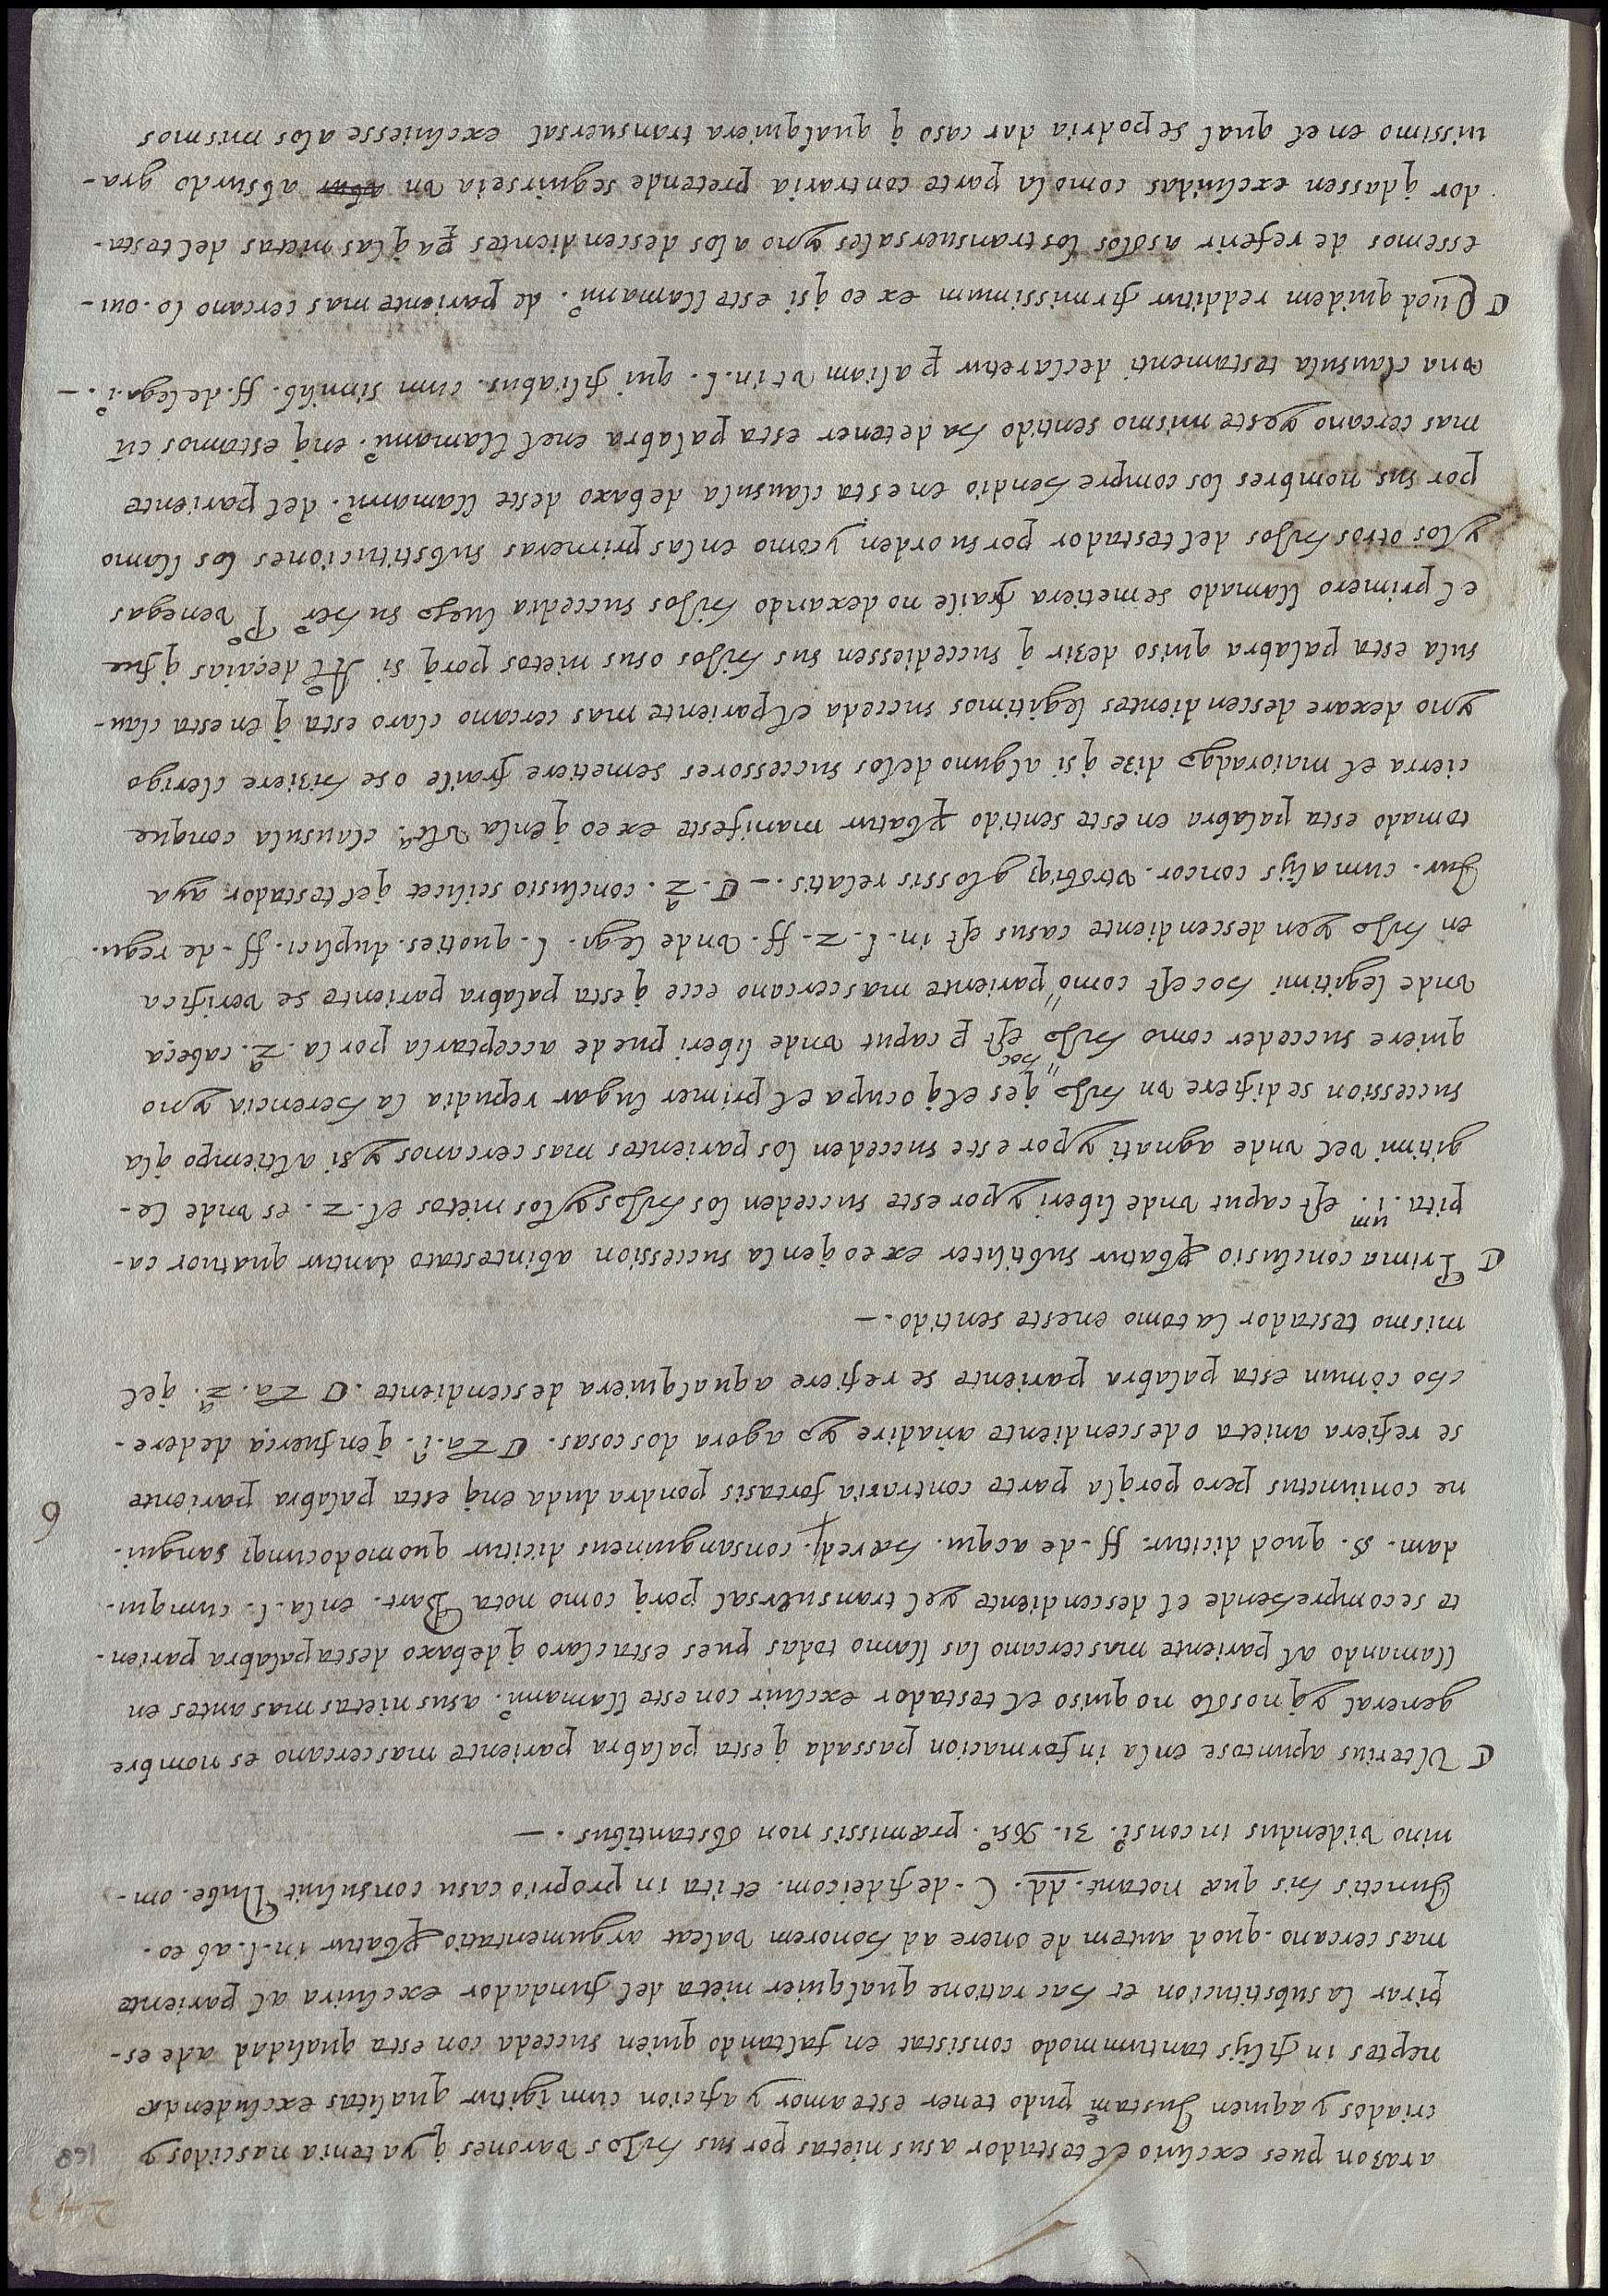 243
168
arazon pues excluio el testador a sus nietas por sus hijos varones q̃ ya tenia nascidos y
criados y aquien Justamẽ pudo tener este amor y aficion cum igitur qualitas excludendæ
neptes in filijs tantummodo consistat en faltando quien suceda con esta qualidad a de es-
pirar la substitucion et hac ratione qualquier nieta del fundador excluira al pariente
mas cercano. quod autem de onere ad honorem valeat argumentatio ꝓbatur in. l. ab eo.
Junctis his quæ notant. dd. C. de fideicom. et ita in proprio casu consuluit Dube. om-
nino videndus in consi.º 31. præmissis non obstantibus. —
Ulterius apuntose en la informacion passada q̃ esta palabra pariente mas cercano es nombre
general y q̃ no solo no quiso el testador excluir con este llamamiº. a sus nietas mas antes en
llamando al pariente mas cercano las llamo todas pues esta claro q̃ debaxo desta palabra parien-
te se comprehende el descendiente y el transuersal porq̃ como nota Bart. en la. l. cum qui-
dam. §. quod dicitur. ff. de acqui. hæredi. consanguineus dicitur quomodocunqȝ sangui-
ne coniunctus pero porq̃ la parte contraria fortasis pondra duda en q̃ esta palabra pariente
6
se refiera a nieta o descendiente añadire yo agora dos cosas. La. i.ª q̃ en fuerça de dere-
cho comun esta palabra pariente se refiere a qualquiera descendiente. La. 2.ª q̃ el
mismo testador la tomo en este sentido. —
Prima conclusio ꝓbatur subtiliter ex eo q̃ en la succession abintestato dantur quatuor ca-
pita. i.um est caput unde liberi y por este succeden los hijos y los nietos el. 2. es unde le-
gitimi vel unde agnati y por este succeden los parientes mas cercanos y si al tiempo q̃ la
succession se difiere un hijo q̃ es el q̃ ocupa el primer lugar repudia la herencia y no
quiere succeder como hijo hoc est ꝑ caput unde liberi puede acceptarla por la. 2.ª cabeça
unde legitimi hoc est como pariente mas cercano ecce q̃ esta palabra pariente se verifica
en hijo y en descendiente casus est in. l. 2. ff. unde legi. l. quoties. duplici. ff. de regu.
Jur. cum alijs concor. utrobiqȝ glossis relatis. — . 2.ª conclusio scilicet q̃ el testador aya
tomado esta palabra en este sentido ꝓbatur manifeste ex eo q̃ en la ultª. clausula con que
cierra el maioradgo dize q̃ si alguno de los successores se metiere fraile o se hiziere clerigo
y no dexare descendientes legitimos succeda el pariente mas cercano claro esta q̃ en esta clau-
sula esta palabra quiso dezir q̃ succediessen sus hijos o sus nietos porq̃ si Alº deçaias q̃ fue
el primero llamado se metiera fraile no dexando hijos succedia luego su herº Pº venegas
y los otros hijos del testador por su orden y como en las primeras substituciones los llamo
por sus nombres los comprehendio en esta clausula debaxo deste llamamiº. del pariente
mas cercano y este mismo sentido ha de tener esta palabra en el llamamiº. en q̃ estamos cũ
una clausula testamenti declaretur ꝑ aliam ut in. l. qui filiabus. cum similib. ff. de lega. i.º —
Quod quidem redditur firmissimum ex eo q̃ si este llamamiº. de pariente mas cercano lo oui-
essemos de referir a solos los transuersales y no a los descendientes ꝑa q̃ las nietas del testa-
dor q̃dassen excluidas como la parte contraria pretende seguirseia un absurdo gra-
uissimo en el qual se podria dar caso q̃ qualquiera transuersal excluiesse a los mismos